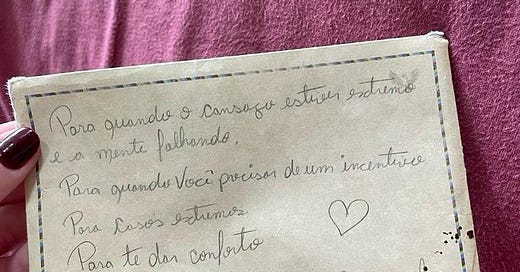 Para quando o cansaço estiver extremo
e a mente falhando.
Para quando você precisar de um incentivo
Para casos extremos
Para te dar conforto